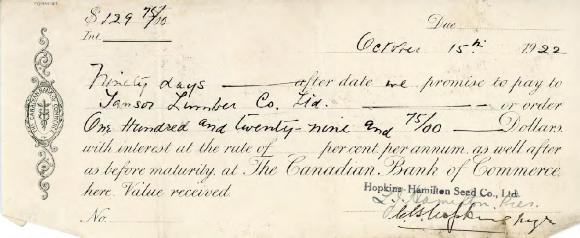 $129 75/00 Due
Int.
October 15th 1922
Ninety days after date we promise to pay to
Tansor Lumber Co. Ltd. or order
One Hundred and twenty-nine and 75/00 Dollars
with interest at the rate of per cent. per annum, as well after
as before maturity, at The Canadian Bank of Commerce
here. Value received.
Hopkins-Hamilton Seed Co., Ltd.
Hamilton, Pres.
No. Hopkins mgr
THE CANADIAN BANK OF COMMERCE